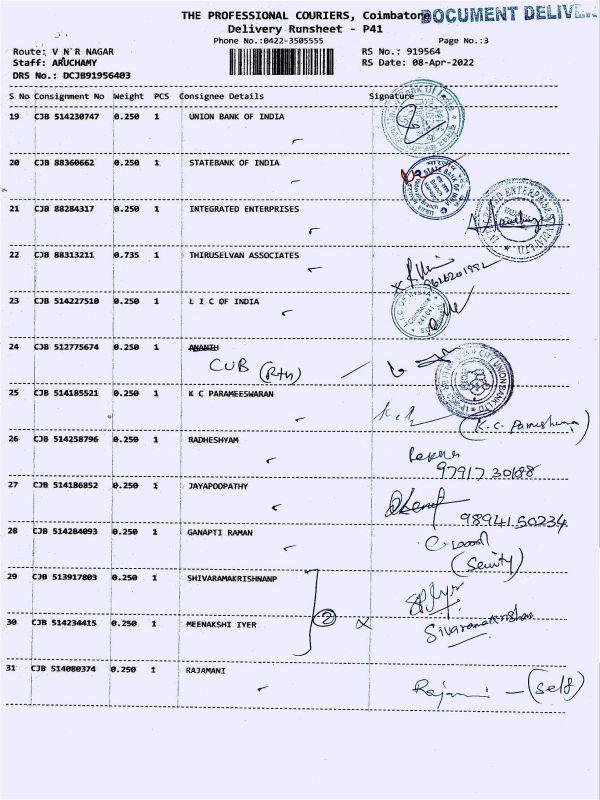 THE PROFESSIONAL COURIERS, Coimbatore
DOCUMENT DELIVER
Delivery Runsheet - P41
Phone No.:0422-3505555
Page No.:3
Route: V N`R NAGAR
RS No.: 919564
Staff: ARUCHAMY
RS Date: 08-Apr-2022
DRS No.: DCJB91956403
S No Consignment No Weight PCS Consignee Details Signature
19 CJB 514230747 0.250 1 UNION BANK OF INDIA
20 CJB 88360662 0.250 1 STATEBANK OF INDIA
STATE BANK OF INDIA
21 CJB 88284317 0.250 1 INTEGRATED ENTERPRISES
22 CJB 88313211 0.735 1 THIRUSELVAN ASSOCIATES
23 CJB 514227510 0.250 1 L I C OF INDIA
24 CJB 512775674 0.250 1 ANANTH
CUB (Rtn)
CITY UNION BANK LTD
25 CJB 514185521 0.250 1 K C PARAMEESWARAN
26 CJB 514258796 0.250 1 RADHESHYAM
97917 30188
27 CJB 514186852 0.250 1 JAYAPOOPATHY
98941 50234
28 CJB 514284093 0.250 1 GANAPTI RAMAN
29 CJB 513917803 0.250 1 SHIVARAMAKRISHNANP
2
30 CJB 514234415 0.250 1 MEENAKSHI IYER
Sivaramakrishnan
31 CJB 514080374 0.250 1 RAJAMANI
Rajamani - (self)